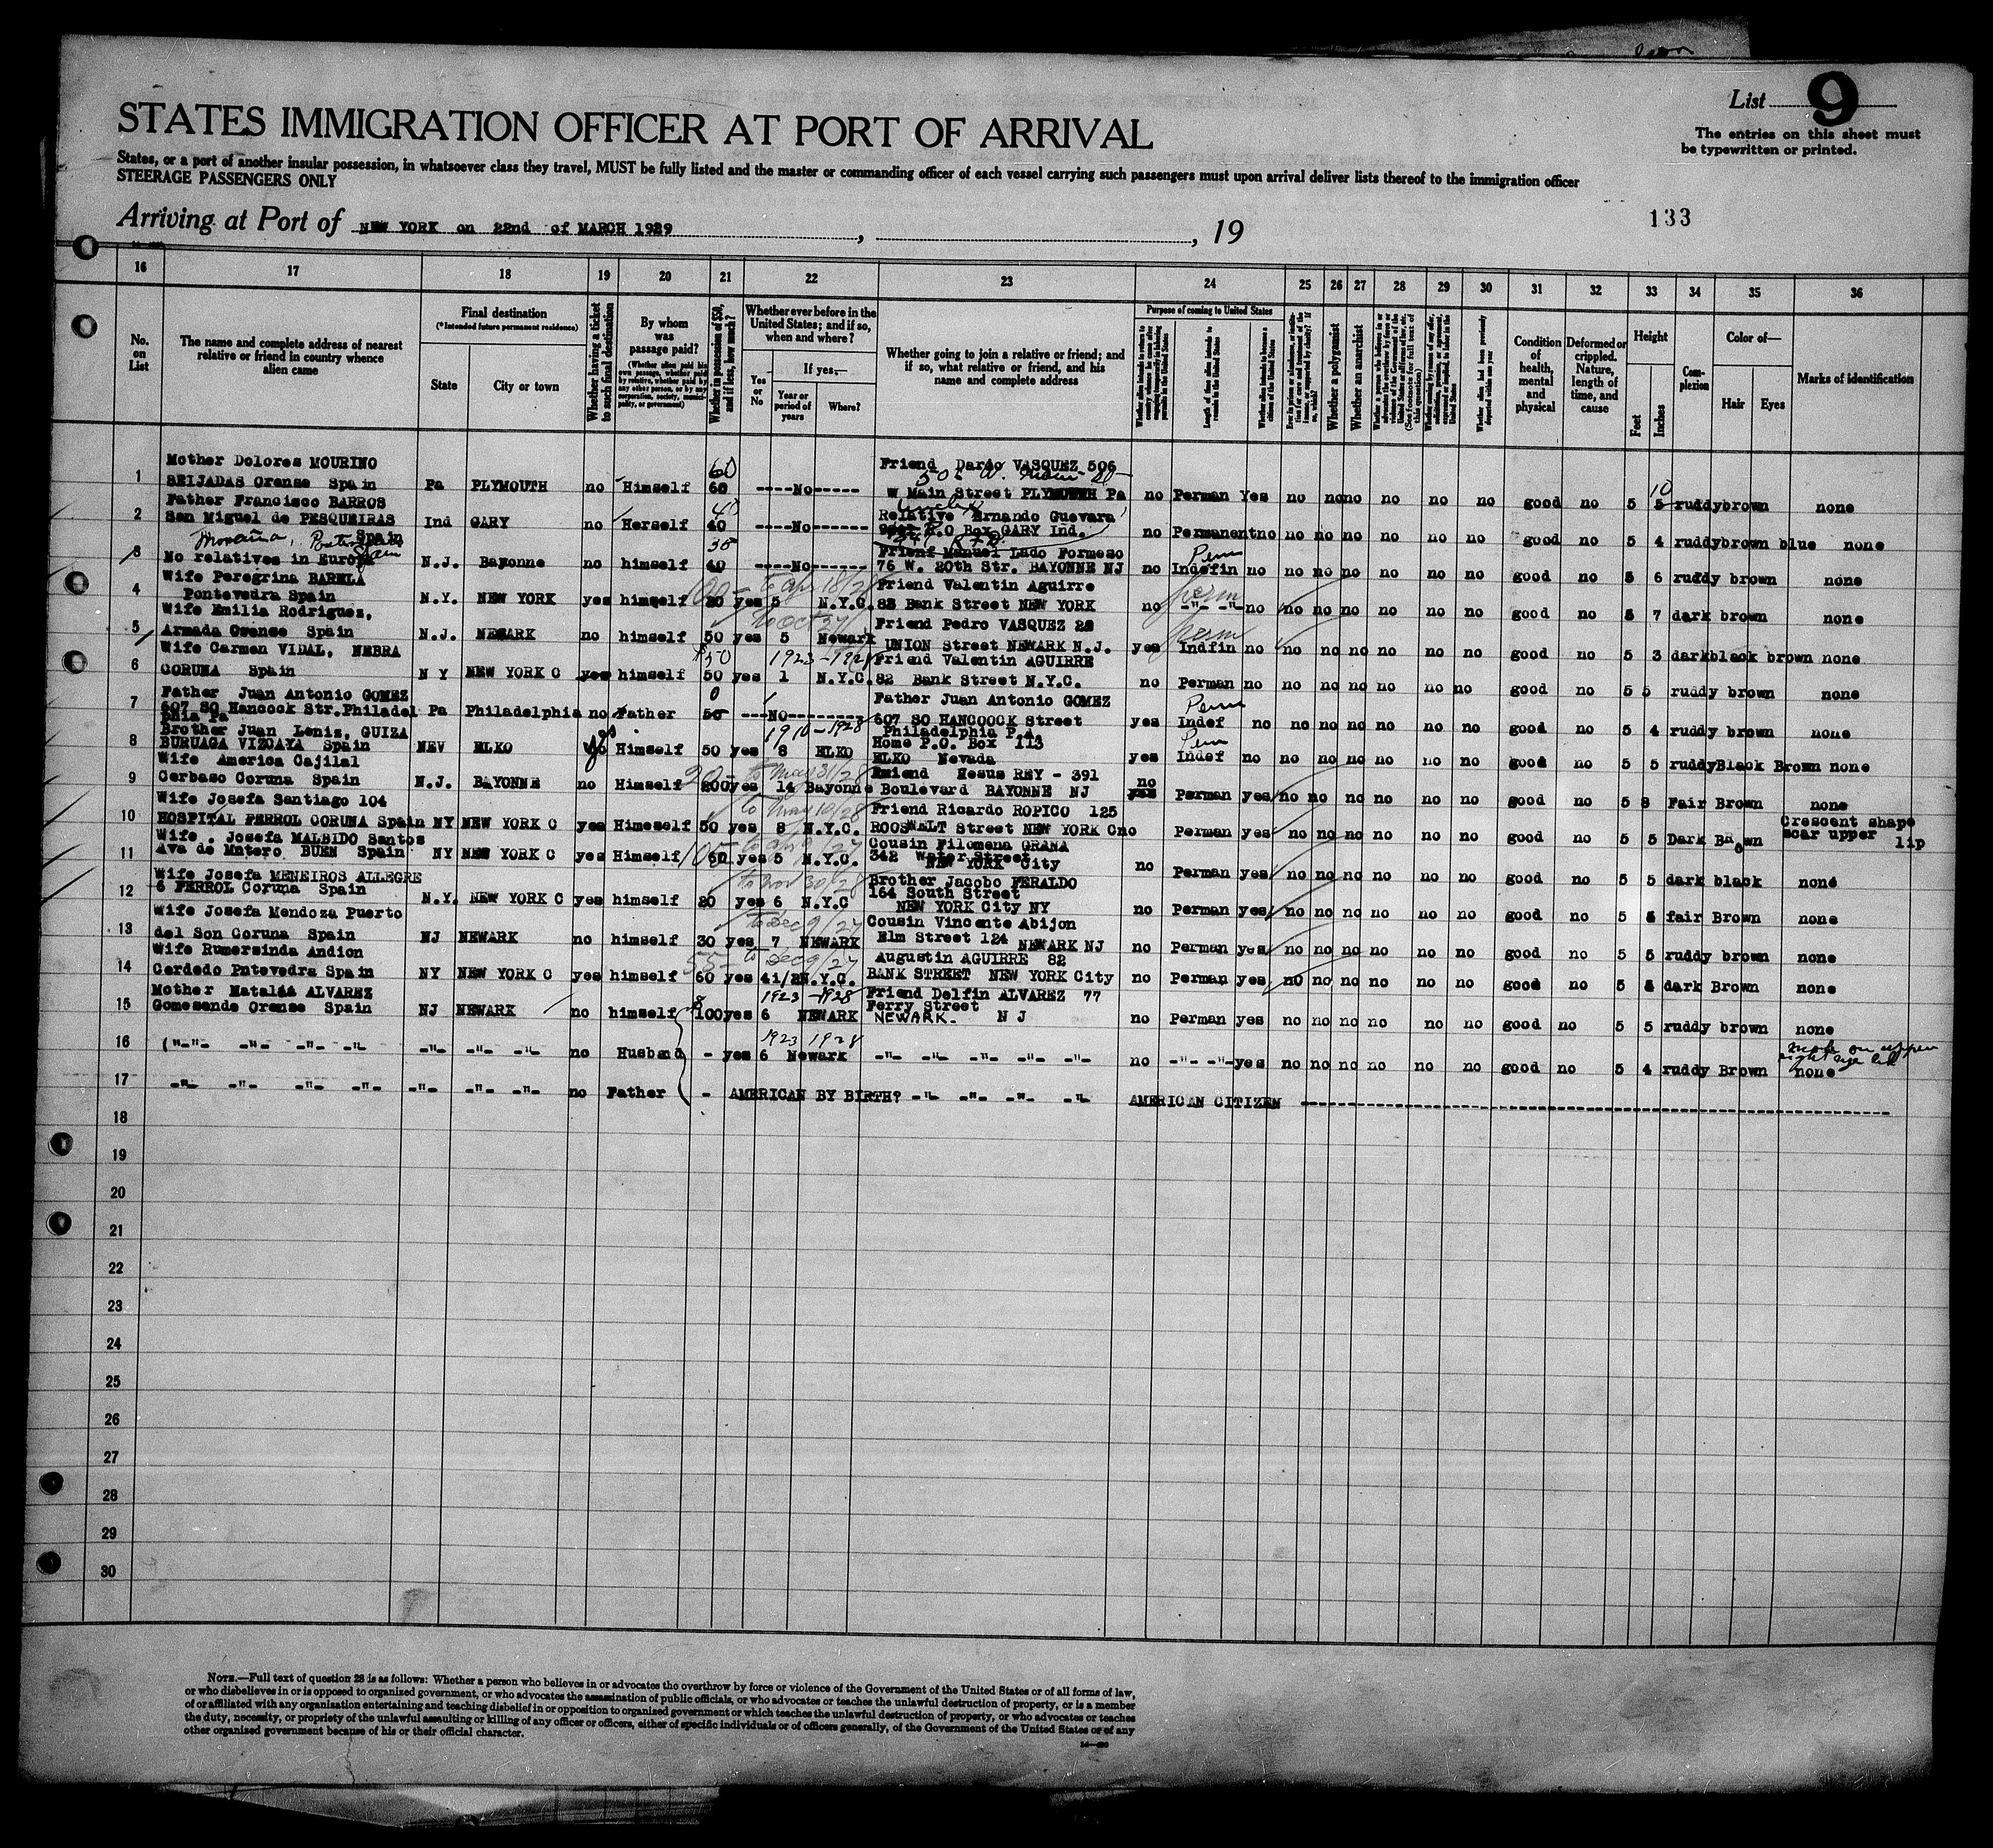 List 9
STATES IMMIGRATION OFFICER AT PORT OF ARRIVAL
The entries on this sheet must
be typewritten or printed.
States, or a port of another insular possession, in whatsoever class they travel, MUST be fully listed and the master or commanding officer of each vessel carrying such passengers must upon arrival deliver lists thereof to the immigration officer
STEERAGE PASSENGERS ONLY
Arriving at Port of NEW YORK on 22nd of MARCH 1929, , 19
133
16 17 18 19 20 21 22 23 24 25 26 27 28 29 30 31 32 33 34 35 36
No. on List
The name and complete address of nearest relative or friend in country whence alien came
Final destination
(*Intended future permanent residence)
State
City or town
Whether having a ticket to such final destination
By whom was passage paid?
(Whether alien paid his own passage, whether paid by relative, whether paid by any other person, or by any corporation, society, municipality, or government)
Whether in possession of $50, and if less, how much?
Whether ever before in the United States; and if so, when and where?
Yes or No
If yes—
Year or period of years
Where?
Whether going to join a relative or friend; and if so, what relative or friend, and his name and complete address
Purpose of coming to United States
Length of time alien intends to remain in the United States
Whether alien intends to become a citizen of the United States
Whether a polygamist
Whether an anarchist
Condition of health, mental and physical
Deformed or crippled. Nature, length of time, and cause
Height
Feet
Inches
Complexion
Color of—
Hair
Eyes
Marks of identification
Mother Dolores MOURINO Friend Dardo VASQUEZ 506
1 SEIJADAS Orense Spain Pa PLYMOUTH no Himself 60 ----No----- W Main Street PLYMOUTH Pa no Perman Yes no no no no no no good no 5 10 ruddy brown none
Father Francisco BARROS Relative Ernando Guevara
2 San Miguel de PESQUEIRAS Spain Ind GARY no Herself 40 ----No------ P.O Box GARY Ind. no Permanent no no no no no no no good no 5 4 ruddy brown blue none
3 No relatives in Europe N.J. Bayonne no himself 40 ----No---- Friend Manuel Lado Formeso
76 W. 20th Str. BAYONNE NJ no Indefin no no no no no no no good no 5 6 ruddy brown none
Wife Peregrina BARELA Friend Valentin Aguirre
4 Pontevedra Spain N.Y. NEW YORK yes himself 20 yes 5 N.Y.C. 82 Bank Street NEW YORK no -"- -"- no no no no no no no good no 5 7 dark brown none
Wife Emilia Rodrigues, Friend Pedro VASQUEZ 28
5 Armada Orense Spain N.J. NEWARK no himself 50 yes 5 Newark UNION Street NEWARK N.J. yes Indfin no no no no no no no good no 5 3 dark black brown none
Wife Carmen VIDAL, NEBRA $50 1923-1928 Friend Valentin AGUIRRE
6 CORUNA Spain N Y NEW YORK C yes himself 50 yes 1 N.Y.C. 82 Bank Street N.Y.C. no Perman no no no no no no no good no 5 5 ruddy brown none
Father Juan Antonio GOMEZ 0 Father Juan Antonio GOMEZ
7 607 SO Hancock Str. Philadelphia Pa Pa Philadelphia no Father 50 ---NO-------- 607 SO HANCOOCK Street
Philadelphia P.A. yes Indef no no no no no no no good no 5 4 ruddy brown none
Brother Juan Leniz, GUIZA 1910-1928
8 BURUAGA VIZCAYA Spain NEV ELKO Himself 50 yes 8 ELKO Home P.O. Box 113
ELKO Nevada yes Indef no no no no no no no good no 5 5 ruddy Black Brown none
Wife America Cajilal to May 31/28
9 Cerbaso Coruna Spain N.J. BAYONNE no Himself 200 yes 14 Bayonne Friend Hesus REY - 391
Boulevard BAYONNE NJ no Perman yes no no no no no no good no 5 8 Fair Brown none
Wife Josefa Santiago 104 to May 10/28 Friend Ricardo ROPICO 125 Crescent shape
10 HOSPITAL FERROL CORUNA Spain NY NEW YORK C yes Himeself 50 yes 8 N.Y.C. ROOSWELT Street NEW YORK C no Perman yes no no no no no no good no 5 5 Dark Brown scar upper lip
Wife . Josefa MALBIDO Santos Cousin Filomena GRANA
11 Ava de Matero BUEN Spain NY NEW YORK C yes Himself 60 yes 5 N.Y.C. 342 Water Street
NEW YORK City no Perman yes no no no no no no good no 5 5 dark black none
Wife Josefa MENEIROS ALLEGRE to Nov 30/28 Brother Jacobo FERALDO
12 6 FERROL Coruna Spain N.Y. NEW YORK C yes himself 20 yes 6 N.Y.C 164 South Street
NEW YORK City NY no Perman yes no no no no no no good no 5 fair Brown none
Wife Josefa Mendoza Puerto to Dec 9/27 Cousin Vincente Abijon
13 del Son Coruna Spain NJ NEWARK no himself 30 yes 7 NEWARK Elm Street 124 NEWARK NJ no Perman yes no no no no no no good no 5 5 ruddy brown none
Wife Rumersinda Andion 55- to Dec 9/27 Augustin AGUIRRE 82
14 Cerdedo Pntevedra Spain NY NEW YORK C yes himself 60 yes 41/2 N.Y.C. BANK STREET NEW YORK City no Perman yes no no no no no no good no 5 dark Brown none
Mother Natalia ALVAREZ 1923-1928 Friend Delfin ALVAREZ 77
15 Gomesende Orense Spain NJ NEWARK no himself $100 yes 6 NEWARK Ferry Street
NEWARK- N J no Perman yes no no no no no no good no 5 5 ruddy brown none
1923 1928 mole on upper right eye lid
16 ("-"- -"- -"- -"- -"- -"- -"- no Husband - yes 6 Newark -"- -"- -"- -"- -"- no -"- -"- yes no no no no no no good no 5 4 ruddy Brown none
17 -"- -"- -"- -"- -"- -"- -"- no Father - AMERICAN BY BIRTH? -"- -"- -"- -"- AMERICAN CITIZEN --------
18
19
20
21
22
23
24
25
26
27
28
29
30
NOTE.—Full text of question 28 is as follows: Whether a person who believes in or advocates the overthrow by force or violence of the Government of the United States or of all forms of law,
or who disbelieves in or is opposed to organized government, or who advocates the assassination of public officials, or who advocates or teaches the unlawful destruction of property, or is a member
of or affiliated with any organization entertaining and teaching disbelief in or opposition to organized government or which teaches the unlawful destruction of property, or who advocates or teaches
the duty, necessity, or propriety of the unlawful assaulting or killing of any officer or officers, either of specific individuals or of officers generally, of the Government of the United States or of any
other organized government because of his or their official character.